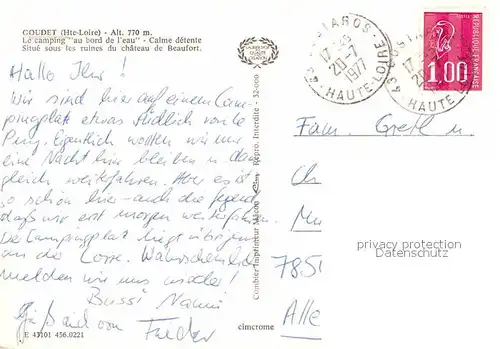 GOUDET (Hte-Loire) - Alt. 770 m.
Le camping "au bord de l'eau" - Calme détente
Situé sous les ruines du château de Beaufort.
Hallo Ihr!
Wir sind hier auf einem Cam-
pingplatz etwas südlich von Le
Puy. Eigentlich wollten wir nur
eine Nacht hier bleiben u. dann
gleich weiterfahren. Aber es ist
so schön hier - auch die Gegend,
daß wir erst morgen weiterfahren.
Der Campingplatz liegt übrigens
an der Loire. Wahrscheinlich
melden wir uns wieder!
Bussi
Grüß auch von
E 43101 456.0221
cimcrome
Combier Imprimeur Mâcon Cim Repro. Interdite - 32-000
COSTAROS
17-45
20-7
1977
HAUTE-LOIRE
COSTAROS
17-
20-
HAUTE
RÉPUBLIQUE FRANÇAISE
1,00
Fam. Gretl u.
785
Alle
privacy protection
Datenschutz